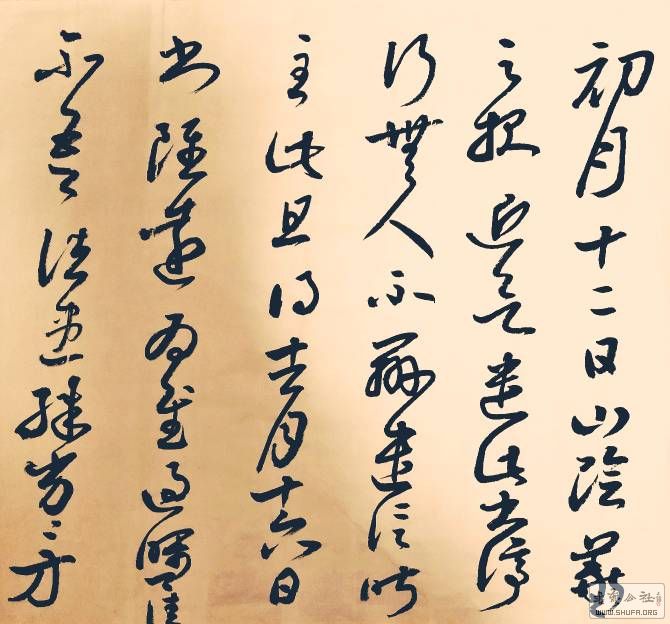 初月十二日山陰羲
之報近欲遣此書停
行無人不辦遣信昨
至此旦得去月十六日
書雖遠為慰過囑卿佳
不吾諸患殊劣〻方
WWW.SHUFA.ORG